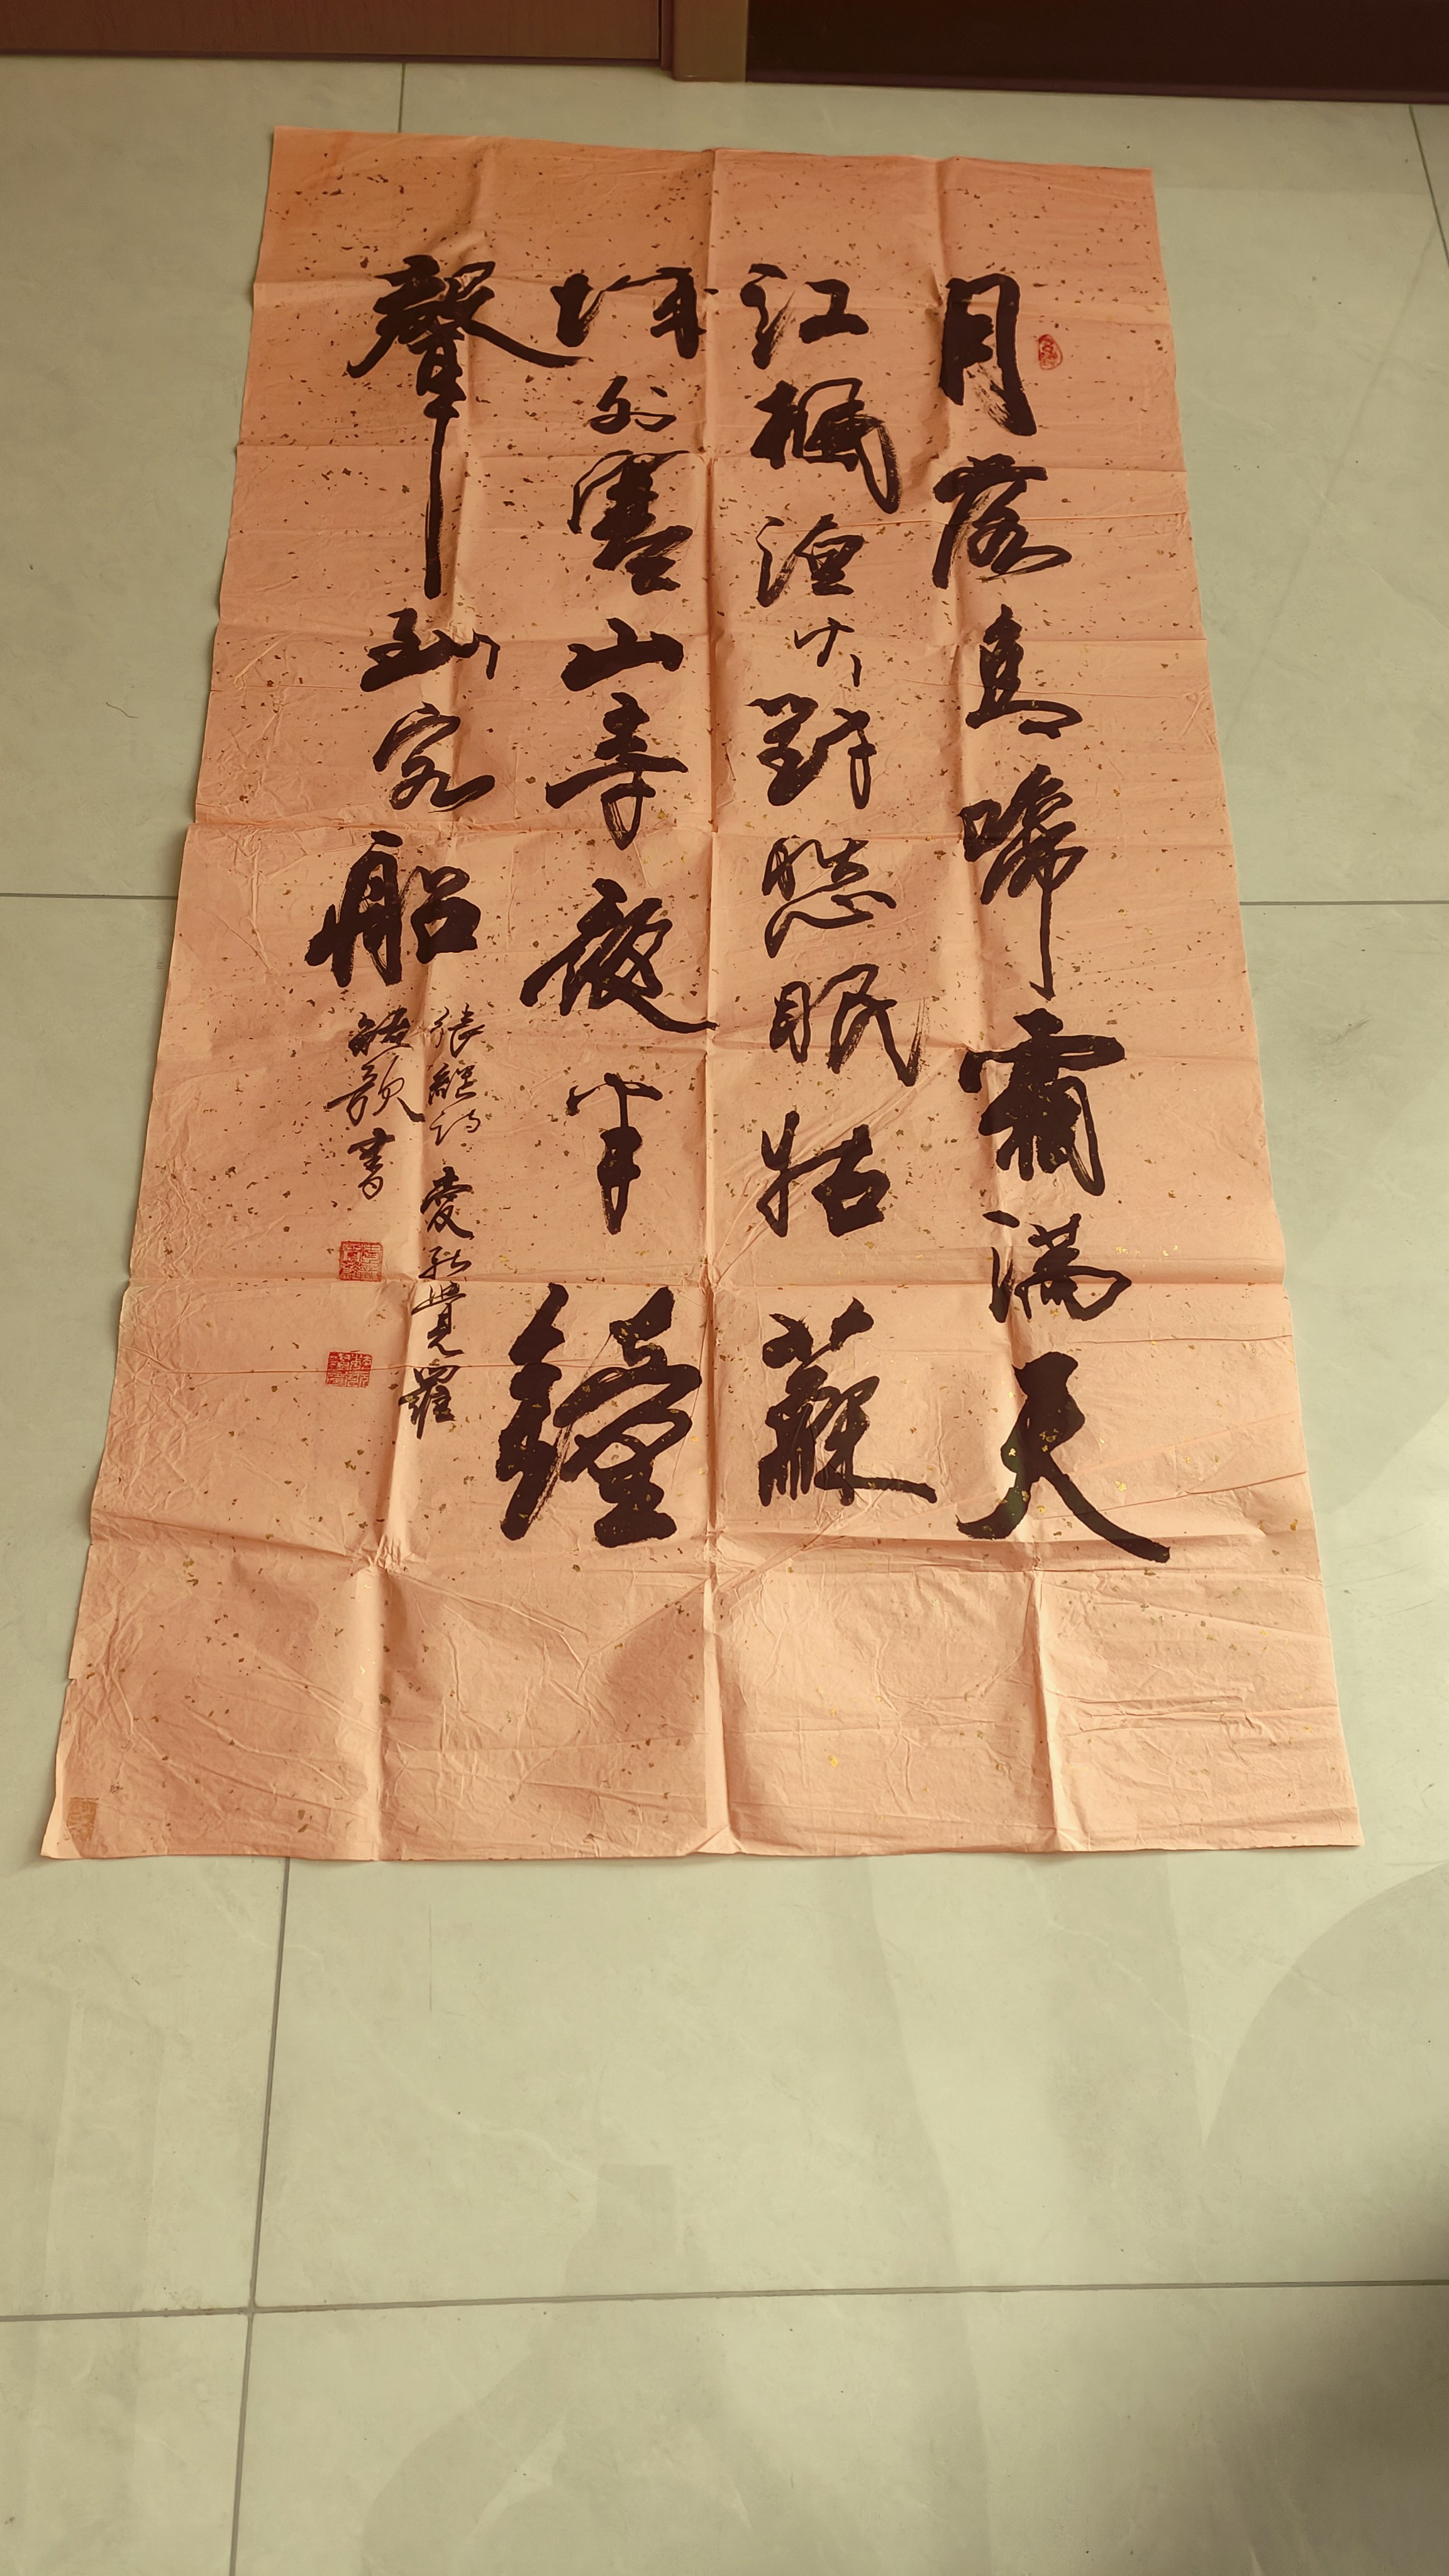 月落烏啼霜滿天
江楓漁火對愁眠姑蘇
城外寒山寺夜半鐘
聲到客船
張繼詩 愛新覺羅
書